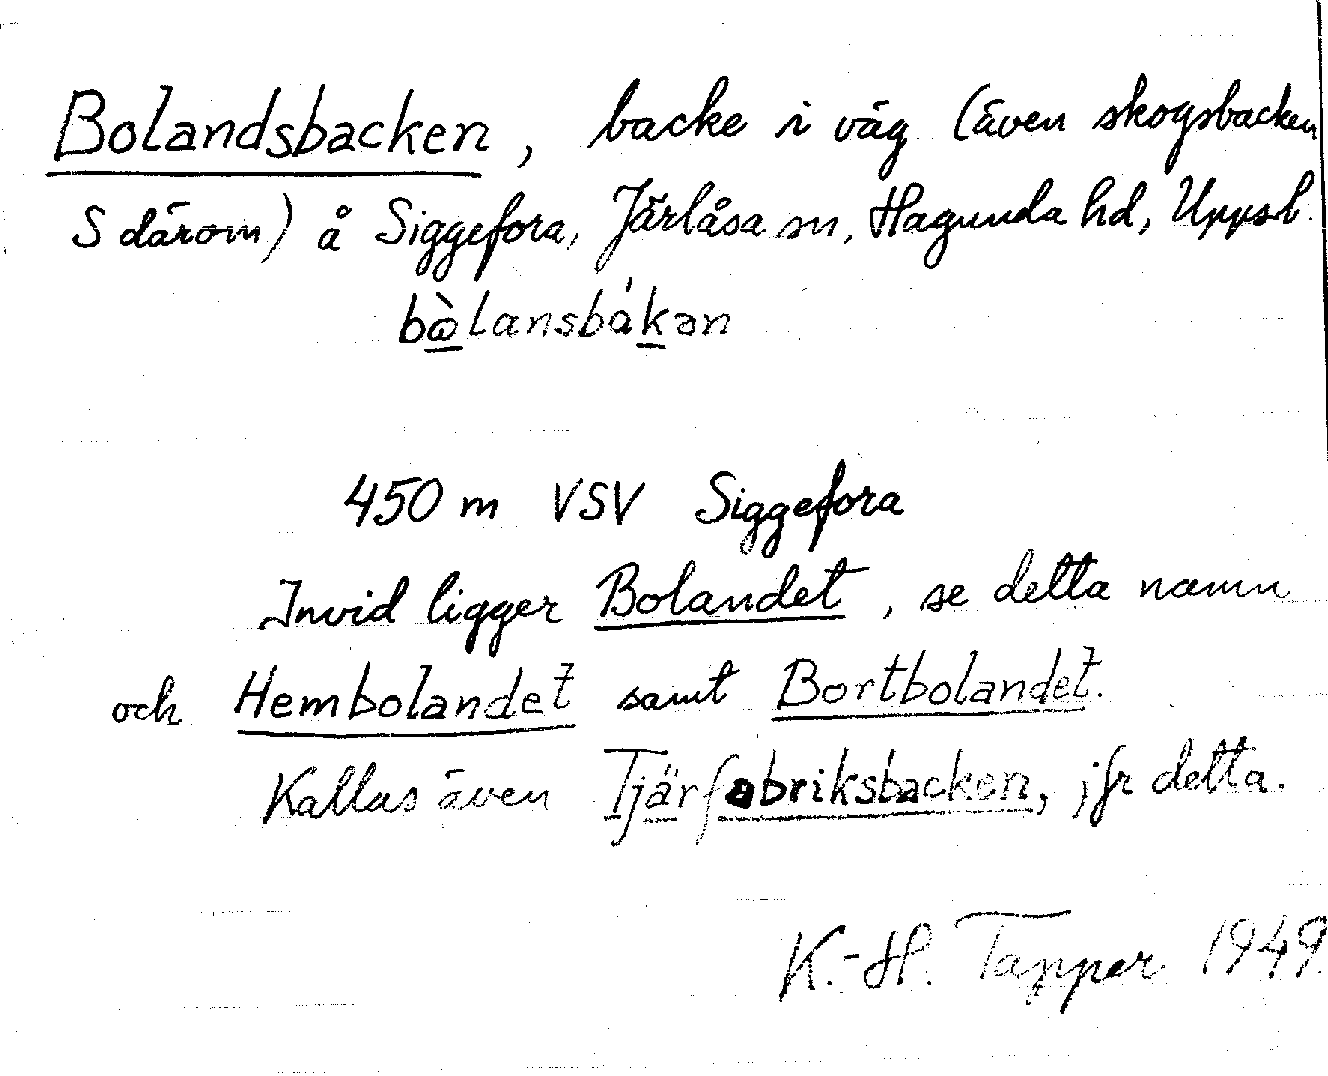 Bolandsbacken, backe i väg (även skogsbacken
S därom) å Siggefora, Järlåsa sn, Hagunda hd, Uppsl.
bɷ̀lansbákən
450 m VSV Siggefora
Invid ligger Bolandet, se detta namn
och Hembolandet samt Bortbolandet.
Kallas även Tjärfabriksbacken, jfr detta.
K.-H. Tapper 1949